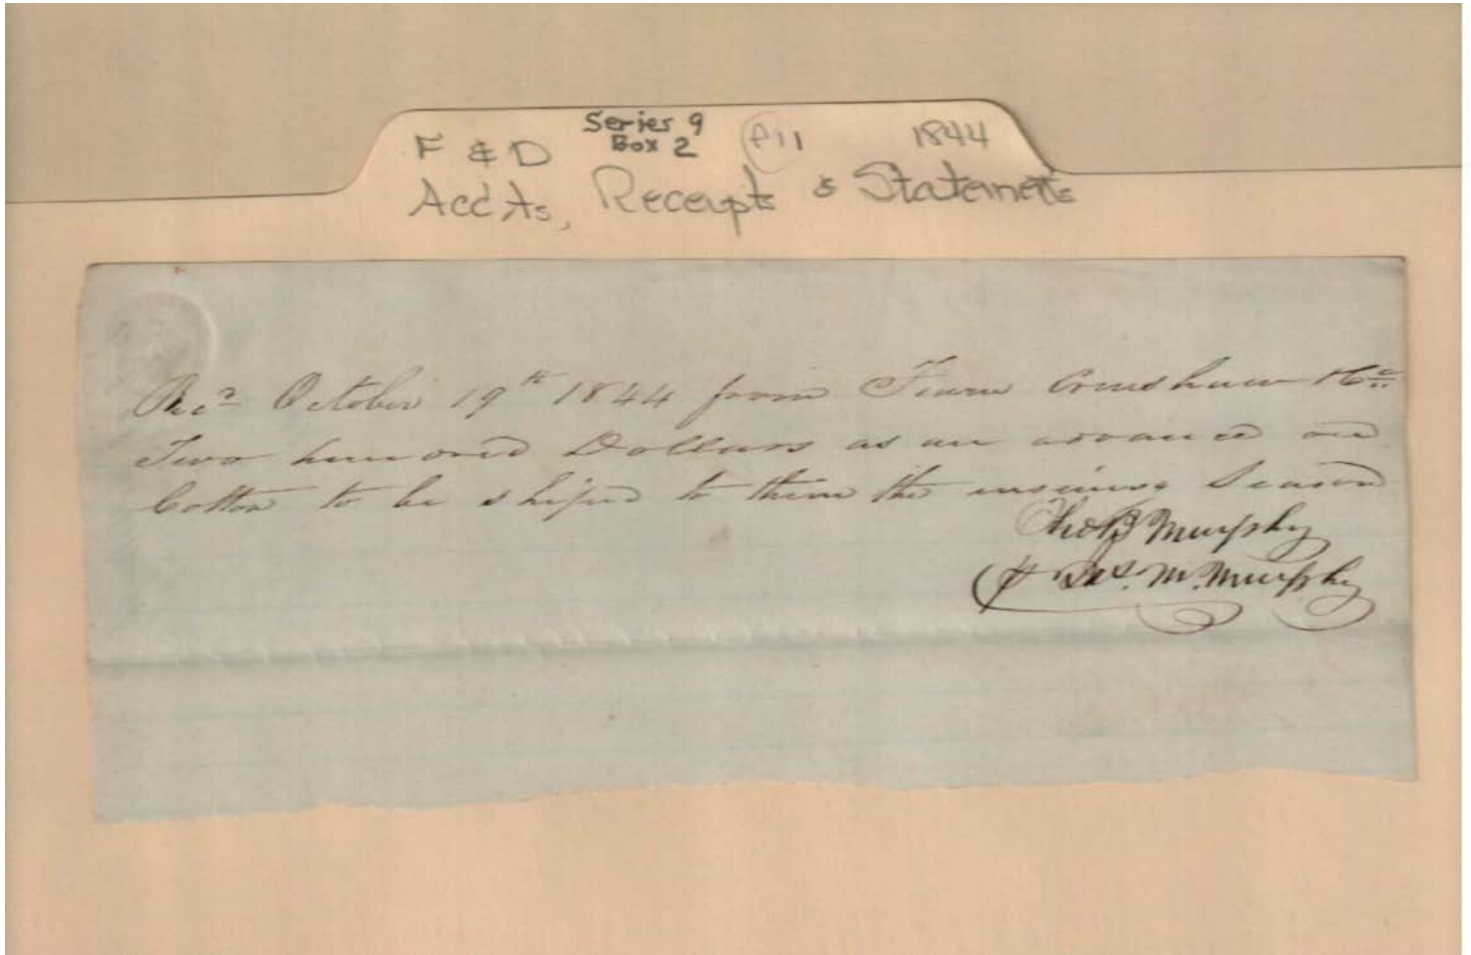 Series 9
F & D Box 2 1844
Acc'ts, Receipts & Statements
Rec'd October 19th 1844 from Fearn Crenshaw & Co.
Two hundred Dollars as an advance on
Cotton to be shiped to them the ensuing Season
Murphy
Jas. M. Murphy